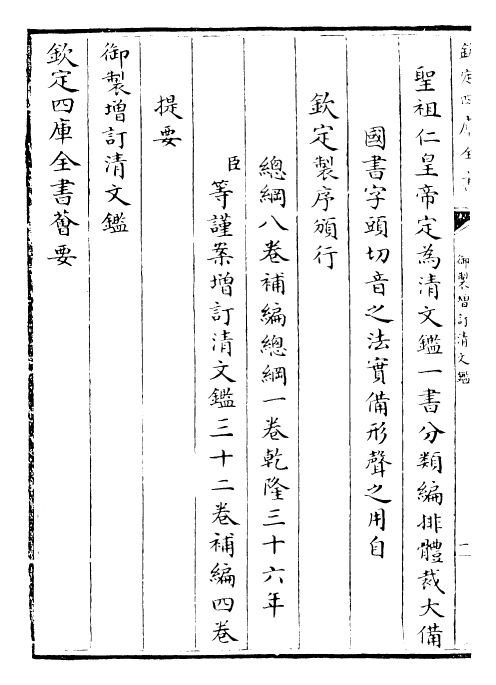 欽定四庫全書薈要
御製增訂清文鑑
提要
臣等謹案增訂清文鑑三十二卷補編四卷
總綱八卷補編總綱一卷乾隆三十六年
欽定製序頒行
國書字頭切音之法實備形聲之用自
聖祖仁皇帝定為清文鑑一書分類編排體裁大備
欽定四庫全書
御製增訂清文鑑
二